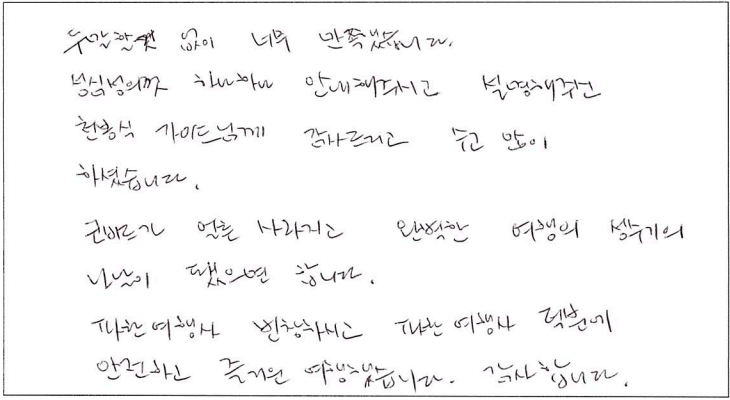 두말할것 없이 너무 만족했습니다.
성심성의껏 하나하나 안내해주시고 설명해주신
현봉식 가이드님께 감사드리고 수고 많이
하셨습니다.
코바르가 얼른 사라지고 완벽한 여행의 성수기의
나날이 됐으면 합니다.
파란여행사 번창하시고 파란여행사 덕분에
안전하고 즐거운 여행했습니다. 감사합니다.